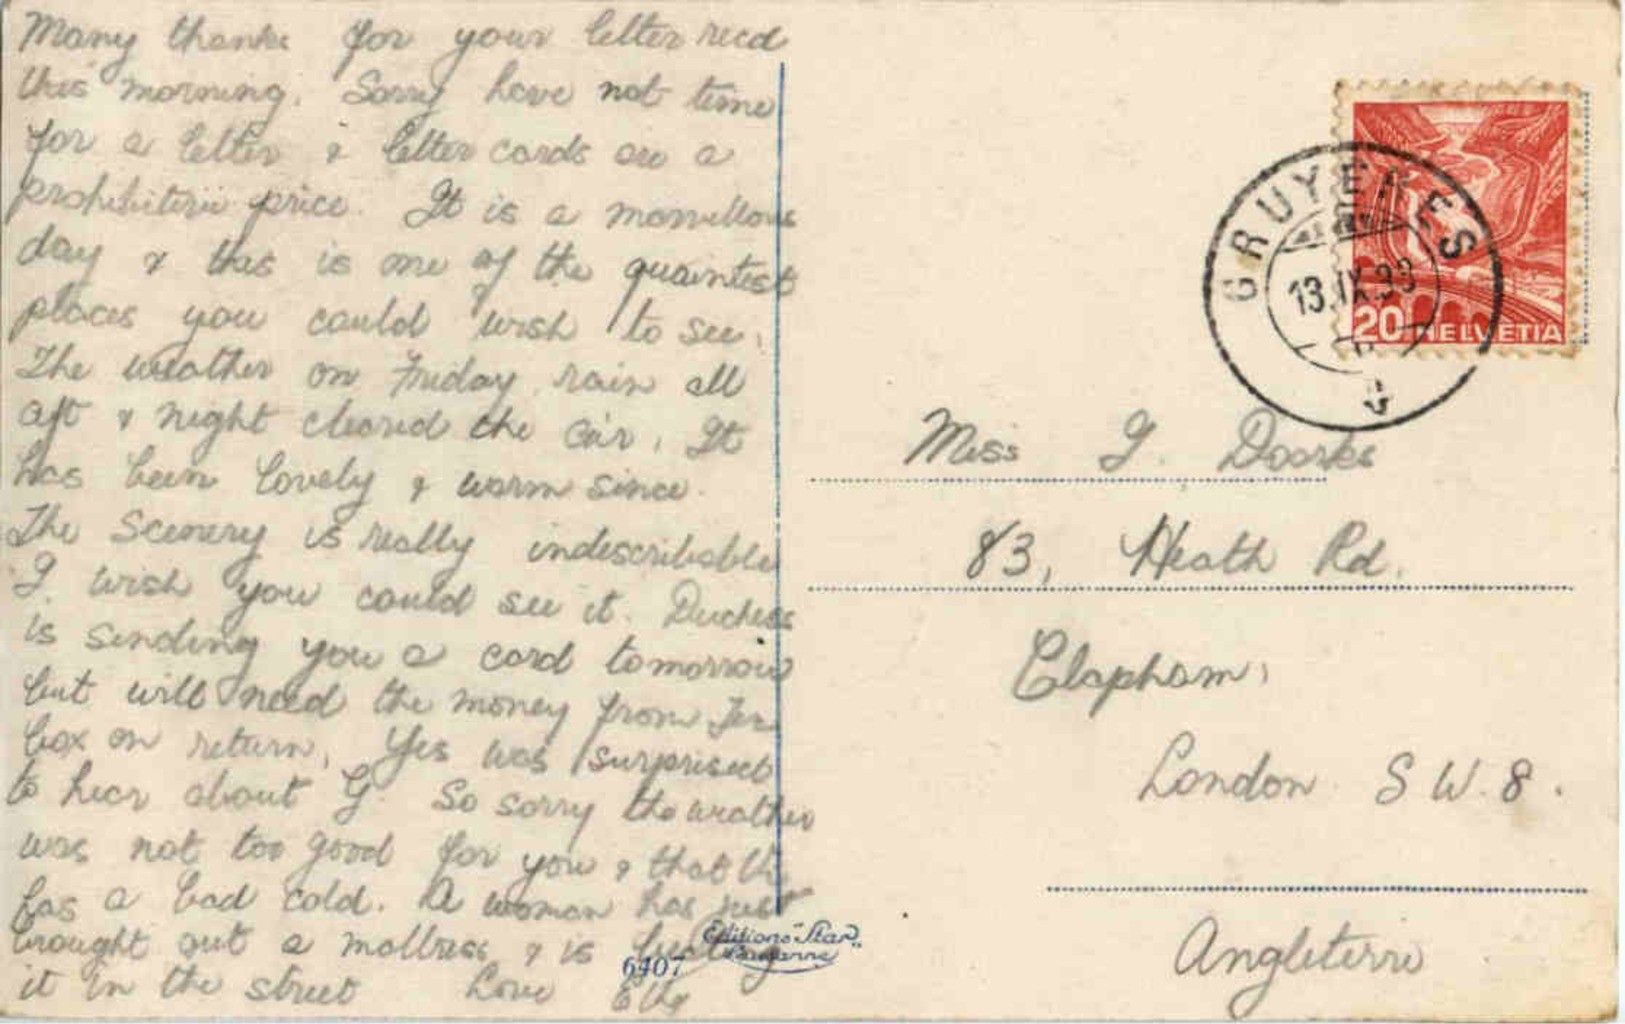 Many thanks for your letter recd
this morning. Sorry have not time
for a letter & letter cards are a
prohibitive price. It is a marvellous
day & this is one of the quaintest
places you could wish to see.
The weather on Friday, rain all
aft & night cleared the air. It
has been lovely & warm since.
The scenery is really indescribable
I wish you could see it. Duchess
is sending you a card tomorrow
but will need the money from
box on return. Yes was surprised
to hear about G. So sorry the weather
was not too good for you & that
has a bad cold. A woman has just
brought out a mattress & is beating
it in the street Love
6407
Editions "Star"
GRUYERES
13.IX.
20 HELVETIA
Miss G. Doorks
83, Heath Rd.
Clapham,
London S W. 8.
Angleterre